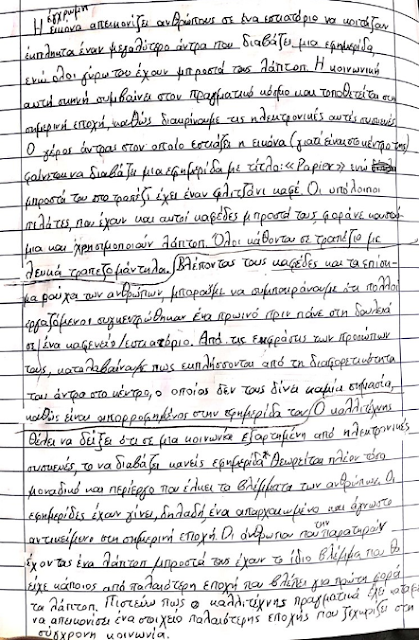 έγχρωμη
Η εικόνα απεικονίζει ανθρώπους σε ένα εστιατόριο να κοιτάζουν
έκπληκτα έναν μεγαλύτερο άντρα που διαβάζει μια εφημερίδα
ενώ όλοι γύρω του έχουν μπροστά τους λάπτοπ. Η κοινωνική
αυτή σκηνή συμβαίνει στον πραγματικό κόσμο και τοποθετείται στη
σημερινή εποχή, καθώς διακρίνουμε τις ηλεκτρονικές αυτές συσκευές.
Ο γέρος άντρας στον οποίο εστιάζει η εικόνα (γιατί είναι στο κέντρο της)
φαίνεται να διαβάζει μια εφημερίδα με τίτλο: «Papier» ενώ
μπροστά του στο τραπέζι έχει έναν φλιτζάνι καφέ. Οι υπόλοιποι
πελάτες, που έχουν και αυτοί καφέδες μπροστά τους, φοράνε κουστού-
μια και χρησιμοποιούν λάπτοπ. Όλοι κάθονται σε τραπέζια με
λευκά τραπεζομάντηλα. Βλέποντας τους καφέδες και τα επίση-
μα ρούχα των ανθρώπων μπορούμε να συμπεράνουμε ότι πολλοί
εργαζόμενοι συγκεντρώθηκαν ένα πρωινό πριν πάνε στη δουλειά
σε ένα καφενείο/εστιατόριο. Από τις εκφράσεις των προσώπων
τους, καταλαβαίνουμε πως εκπλήσσονται από τη διαφορετικότητα
του άντρα στο κέντρο, ο οποίος δεν τους δίνει καμία σημασία,
καθώς είναι απορροφημένος στην εφημερίδα του. Ο καλλιτέχνης
θέλει να δείξει ότι σε μια κοινωνία εξαρτημένη από ηλεκτρονικές
συσκευές, το να διαβάζει κανείς εφημερίδα θεωρείται πλέον τόσο
μοναδικό και περίεργο που έλκυει τα βλέμματα των ανθρώπων. Οι
εφημερίδες έχουν γίνει, δηλαδή, ένα απαρχαιωμένο και άγνωστο
αντικείμενο στη σημερινή εποχή. Οι άνθρωποι που την παρατηρούν
έχοντας ένα λάπτοπ μπροστά τους έχουν το ίδιο βλέμμα που θα
είχε κάποιος από παλαιότερη εποχή που βλέπει για πρώτη φορά
το λάπτοπ. Πιστεύω πως ο καλλιτέχνης πραγματικά έχει
να απεικονίσει ένα στοιχείο παλαιότερης εποχής που ξεχωρίζει στη
σύγχρονη κοινωνία.